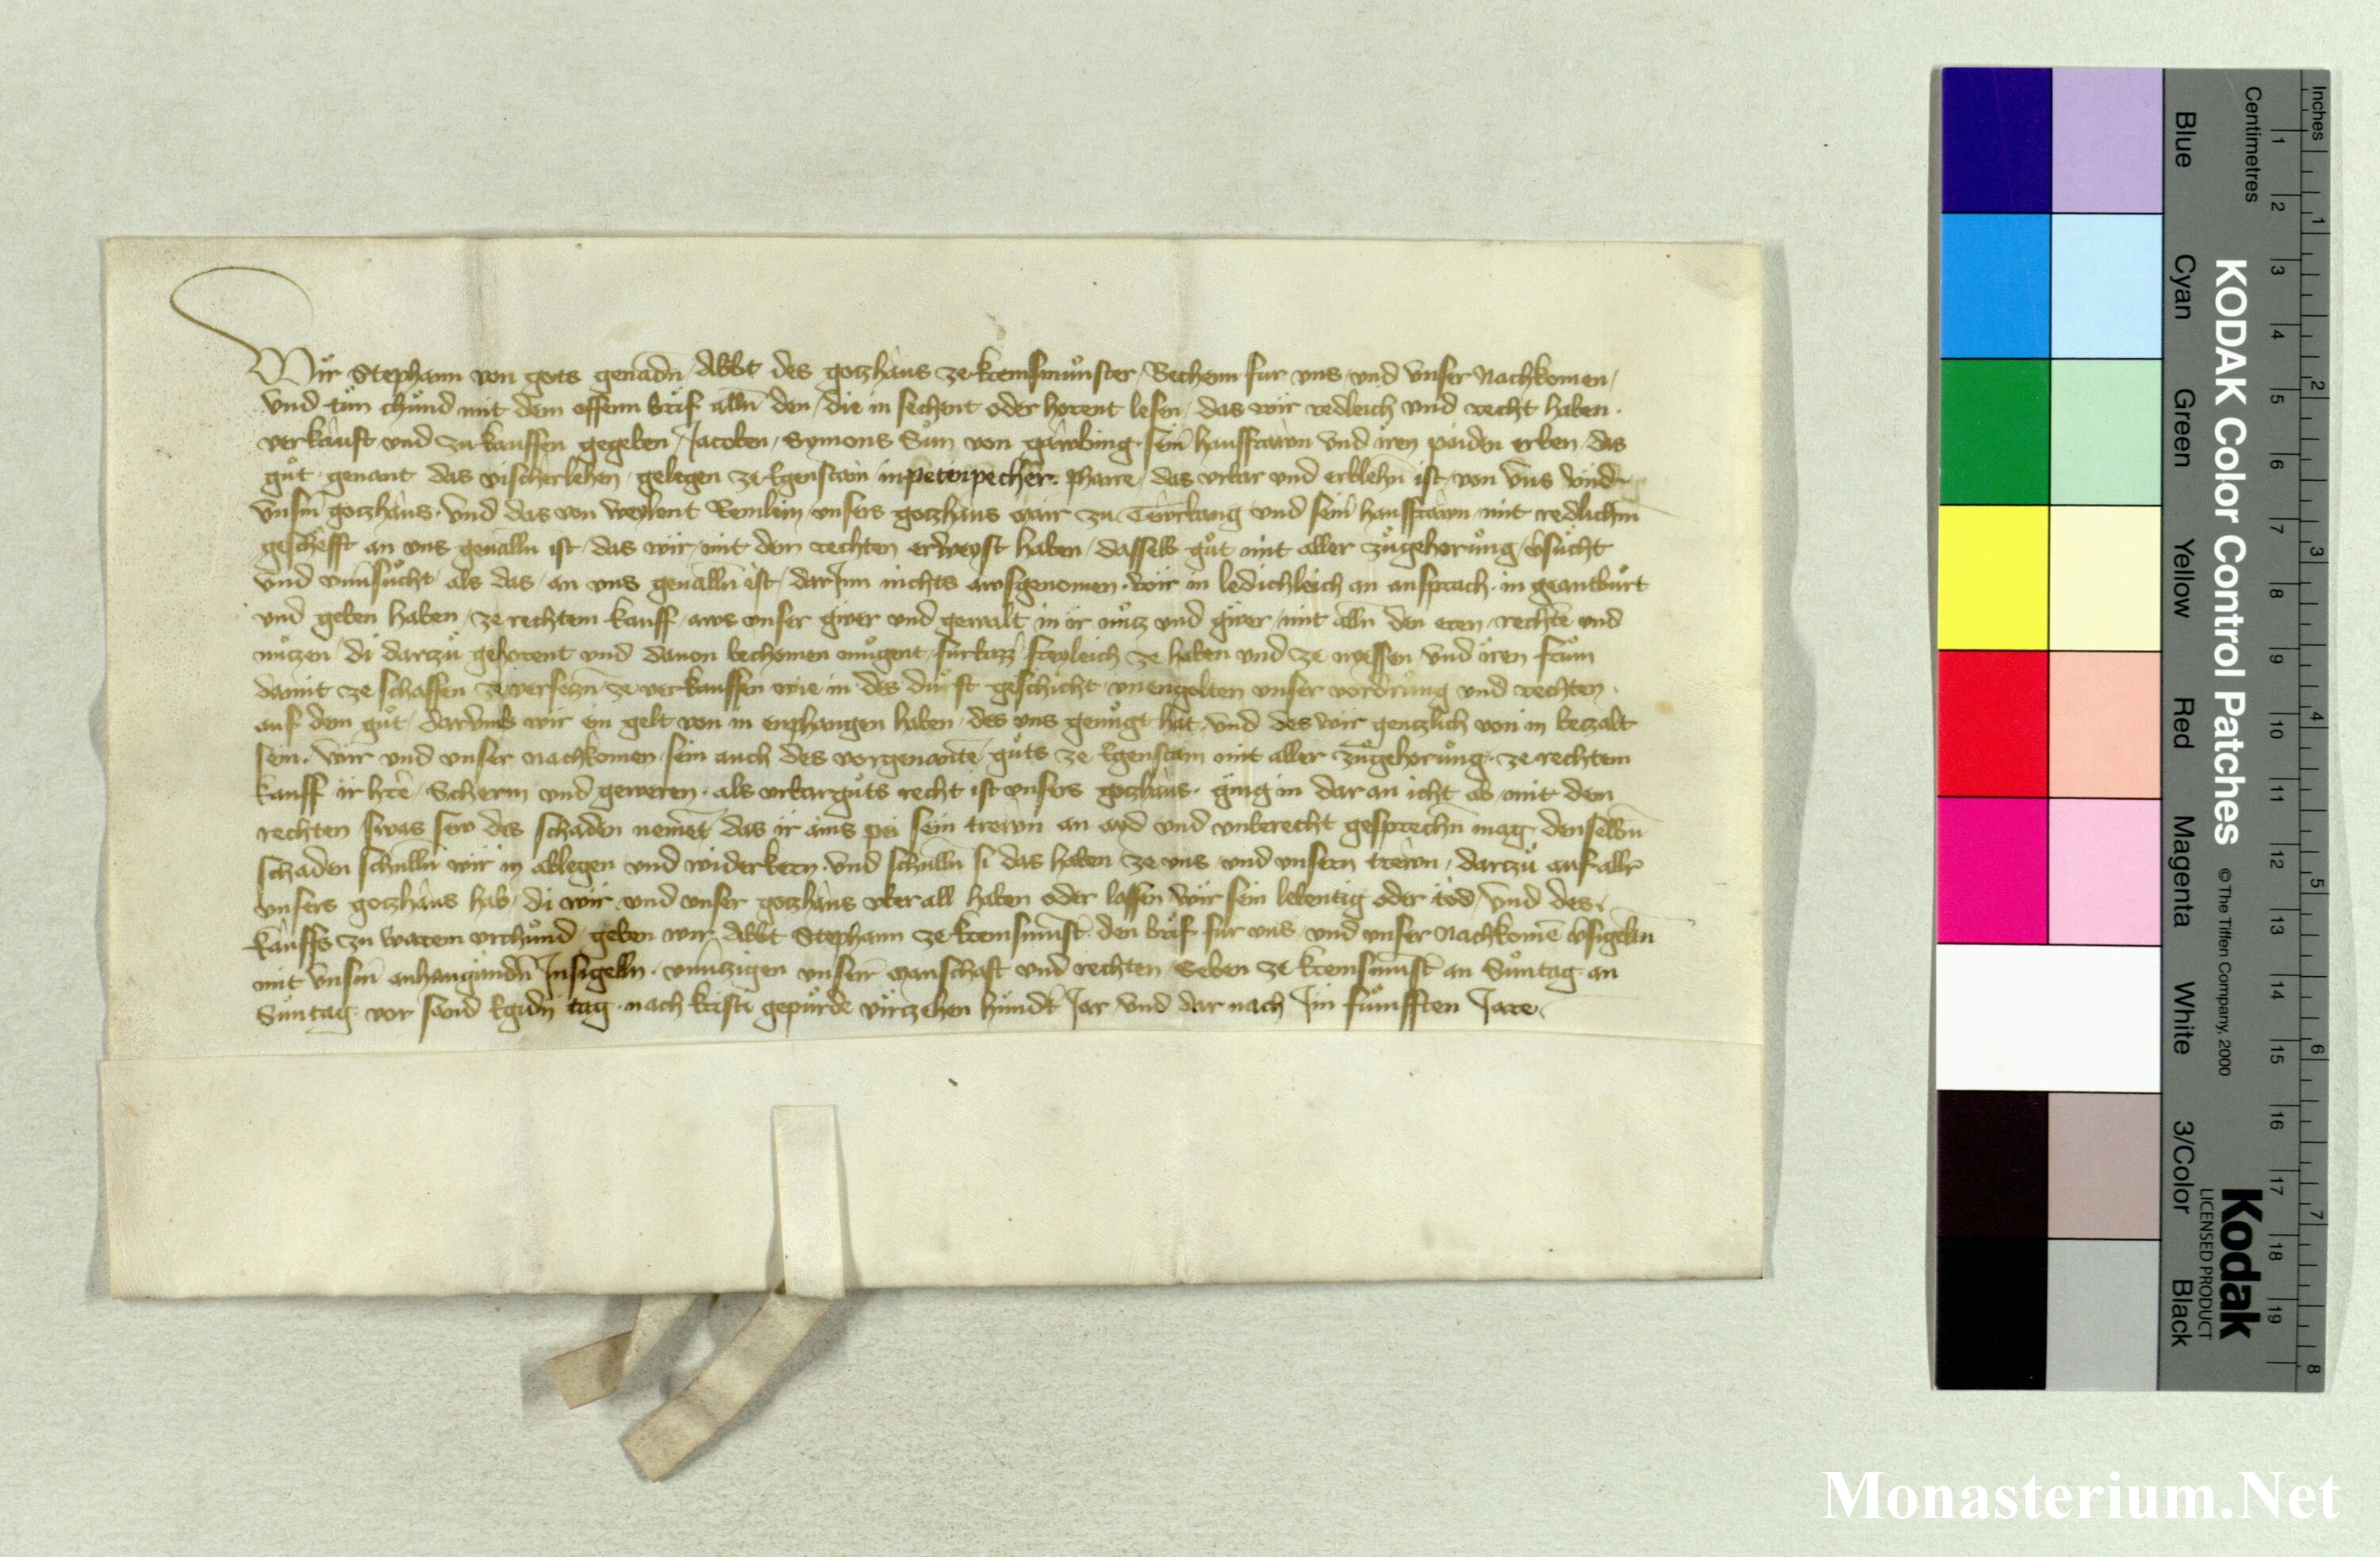 Wir Stephann von gots genadn Abbt des gotzhaus ze kremsmůnster Bechenn fur vns vnd vnser Nachkomen
vnd tůn chůnd mit dem offenn brif alln den die in sechent oder horent lesen das wir redleich vnd recht haben
verkauft vnd zu kauffen gegeben Jacoben Symons Sůn von hausfrawn vnd iren paiden erben das
gůt genant das vischerlehen gelegen ze Egenstain in petenpecher pharre das vrbar vnd erblehn ist von vns vnd
vnsm gotzhaus vnd das von weylent Remlein vnsers gotzhaus mair zu vnd sein hausfrawn mit redlichm
geschefft an vns geualln ist das wir mit dem rechten erweyst haben dasselb gůt mit aller zůgehorůng vsůcht
vnd vnusůcht als das an vns gevalln ist darJnn nichts awsgenomen wir in ledichleich an ansprach in geantbůrt
vnd geben haben ze rechtem kauff aws vnser gwer vnd gewalt in ir nůtz vnd gwer mit alln den eren rechte vnd
nůtzen di darzů gehorent vnd dauon bechomen můgent furbazz freyleich ze haben vnd ze nyessen vnd iren frům
damit ze schaffen ze versetzn ze verkauffen wie in des důrft geschicht vnengolten vnser vordrůng vnd rechten
auf dem gůt darvmb wir ein gelt von in enphangen haben des vns genůgt hat vnd des wir gentzlich von in betzalt
sein wir vnd vnser nachkomen sein auch des vorgenante gůts ze Egenstain mit aller zůgehorůng ze rechtem
kauff ir Scherm vnd geweren als vrbargůts recht ist vnsers gotzhaus gieng in daran icht ab mit dem
rechten swas sew des schaden nemet das ir ains pei sein trewn an ayd vnd vnberecht gesprechn mag denselbn
schaden schulln wir in ablegen vnd widerkern vnd schulln si das haben ze vns vnd vnsern trewn darzů auf aller
vnsers gotzhaus hab di wir vnd vnser gotzhaus vberall haben oder lassen wir sein lebentig oder tod vnd des
kauffs zu warem vrchůnd geben wir Abbt Stephann ze kremsmůnst den brif fur vns vnd vnser Nachkome vsigelten
mit vnsm anhangundn Jnsigelln vnuertzigen vnserr manschaft vnd rechten Geben ze kremsmůnst an Sůntag an
Sůntag vor sand Egidii tag nach kristi gepůrde virtzehen hůndt Jar vnd dar nach Jm fůmfften Jare
Inches
Centimetres
KODAK Color Control Patches
© The Tiffen Company, 2000
Kodak
LICENSED PRODUCT
Blue
Cyan
Green
Yellow
Red
Magenta
White
3/Color
Black
1 2 3 4 5 6 7 8 9 10 11 12 13 14 15 16 17 18 19
1 2 3 4 5 6 7 8
Monasterium.Net